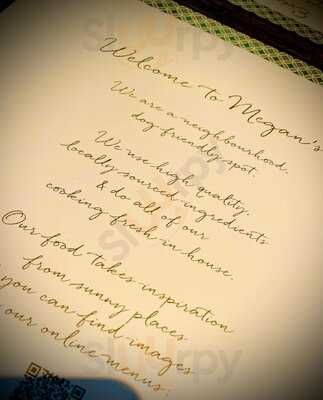 Welcome to Megan's
We are a neighbourhood,
dog-friendly spot.
We use high quality,
locally sourced ingredients
& do all of our
cooking fresh in house.
Our food takes inspiration
from sunny places
you can find images
our online menus.
Sluurpy
Sluurpy
Sluurpy
Sluurpy
Sluurpy